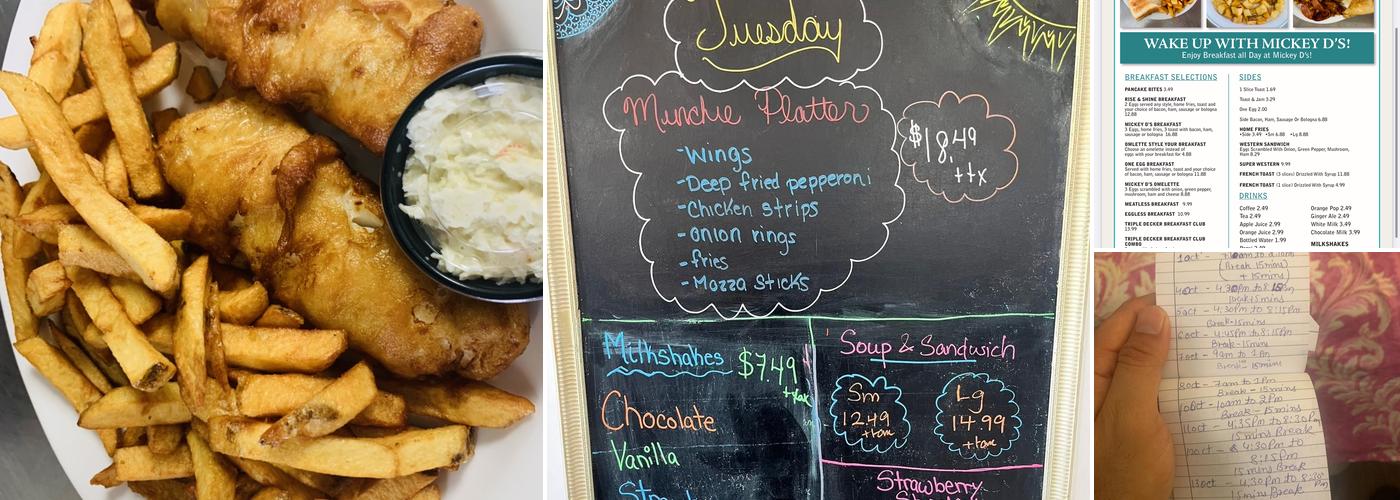 Tuesday
Munchie Platter
-Wings
-Deep fried pepperoni
-Chicken strips
-Onion rings
-fries
-Mozza Sticks
$18.49
+tx
Milkshakes
$7.49
+tax
Chocolate
Vanilla
Soup & Sandwich
Sm
12.49
+tax
Lg
14.99
+tax
Strawberry
WAKE UP WITH MICKEY D'S!
Enjoy Breakfast all Day at Mickey D's!
BREAKFAST SELECTIONS
PANCAKE BITES 3.49
RISE & SHINE BREAKFAST
2 Eggs served any style, home fries, toast and
your choice of bacon, ham, sausage or bologna
12.88
MICKEY D'S BREAKFAST
3 Eggs, home fries, 3 toast with bacon, ham,
sausage or bologna 16.88
OMLETTE STYLE YOUR BREAKFAST
Choose an omelette instead of
eggs with your breakfast for 4.88
ONE EGG BREAKFAST
Served with home fries, toast and your choice
of bacon, ham, sausage or bologna 11.88
MICKEY D'S OMELETTE
3 Eggs scrambled with onion, green pepper,
mushroom, ham and cheese 8.88
MEATLESS BREAKFAST 9.99
EGGLESS BREAKFAST 10.99
TRIPLE DECKER BREAKFAST CLUB
13.99
TRIPLE DECKER BREAKFAST CLUB
COMBO
SIDES
1 Slice Toast 1.69
Toast & Jam 3.29
One Egg 2.00
Side Bacon, Ham, Sausage Or Bologna 6.88
HOME FRIES
•Side 3.49 •Sm 6.88 •Lg 8.88
WESTERN SANDWICH
Eggs Scrambled With Onion, Green Pepper, Mushroom,
Ham 8.29
SUPER WESTERN 9.99
FRENCH TOAST (3 slices) Drizzled With Syrup 11.88
FRENCH TOAST (1 slice) Drizzled With Syrup 4.99
DRINKS
Coffee 2.49
Tea 2.49
Apple Juice 2.99
Orange Juice 2.99
Bottled Water 1.99
Orange Pop 2.49
Ginger Ale 2.49
White Milk 3.49
Chocolate Milk 3.99
MILKSHAKES
(Break 15mins)
+ 15mins)
4oct - 4:30Pm to 8:15Pm
5oct - 4:30Pm to 8:15Pm
Break-15mins
6oct - 4:45Pm to 8:15Pm
Break-15mins
7oct - 9am to 1Pm
Break-15mins
8oct - 7am to 1Pm
Break-15mins
10oct - 10am to 2Pm
Break-15mins
11oct - 4:35Pm to 8:30Pm
15mins Break
4:30Pm to
8:15Pm
15mins Break
13oct - 4:30Pm to
15mins Break